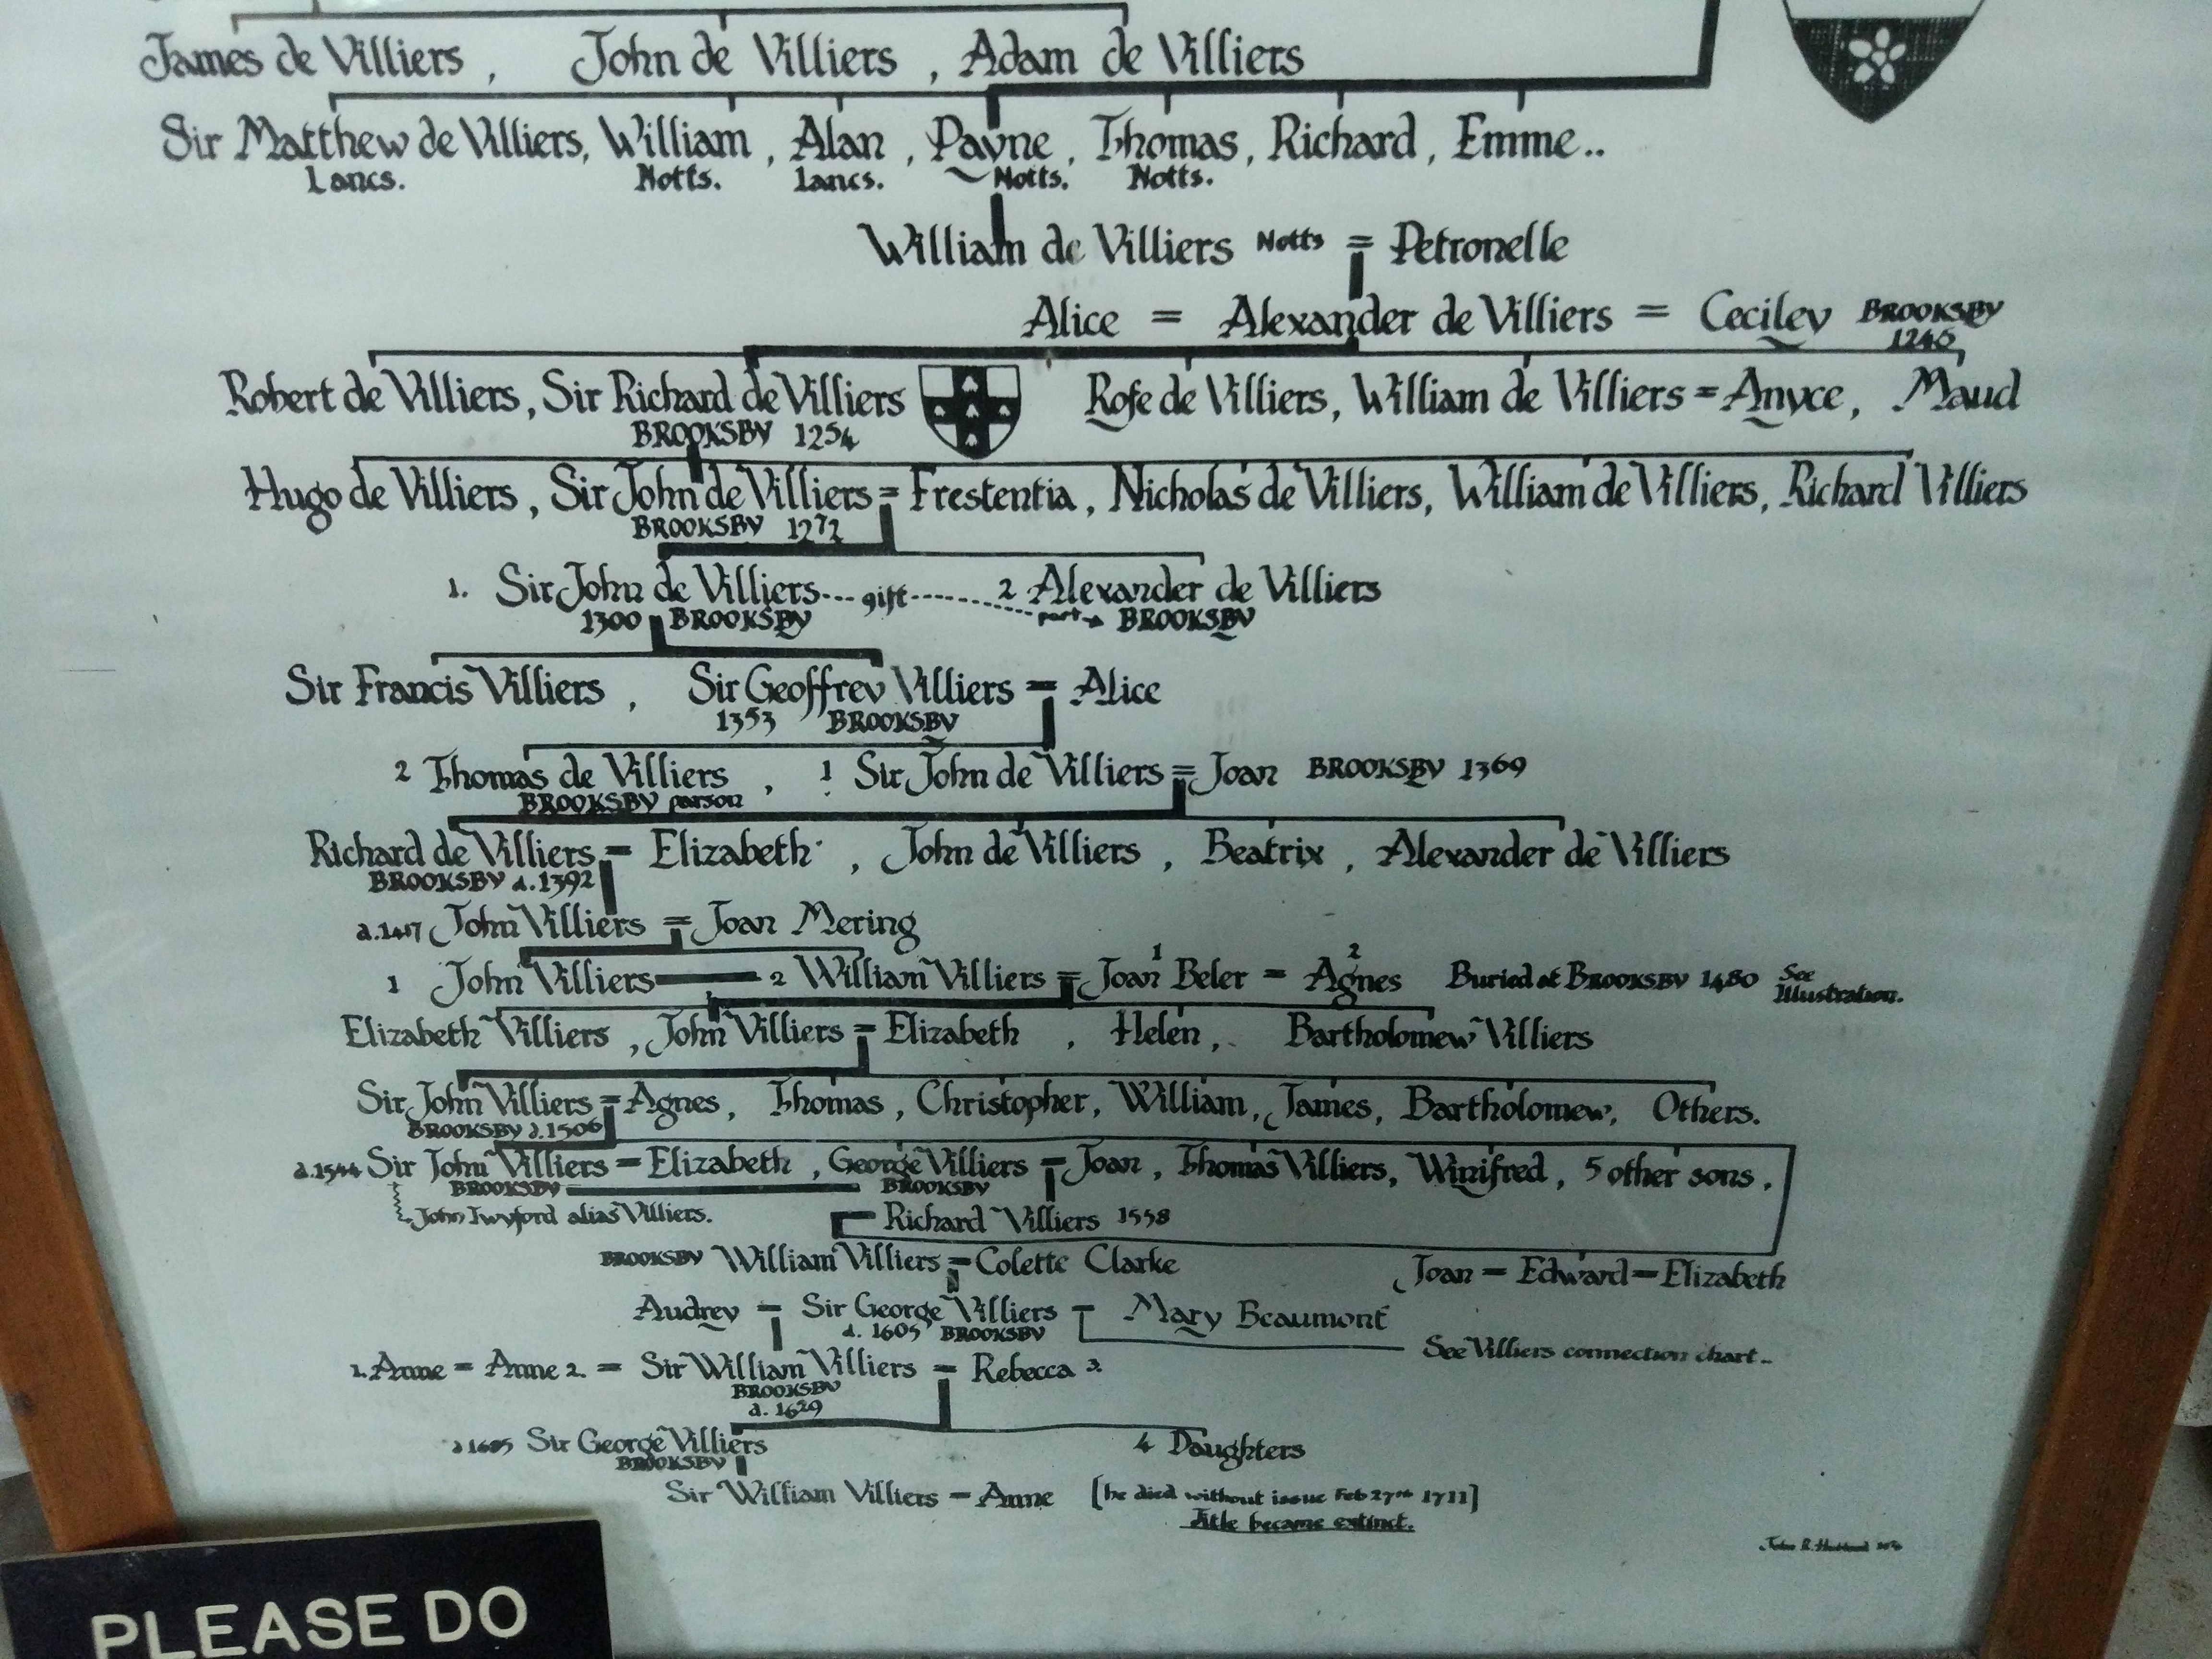 James de Villiers , John de Villiers , Adam de Villiers
Sir Matthew de Villiers, William , Alan , Payne , Thomas, Richard, Emme..
Lancs. Notts. Lancs. Notts. Notts.
William de Villiers Notts = Petronelle
Alice = Alexander de Villiers = Ceciley BROOKSBY
1240
Robert de Villiers, Sir Richard de Villiers Rofe de Villiers, William de Villiers = Anyce, Maud
BROOKSBY 1254
Hugo de Villiers, Sir John de Villiers = Frestentia, Nicholas de Villiers, William de Villiers, Richard Villiers
BROOKSBY 1272
1. Sir John de Villiers... gift ........ 2 Alexander de Villiers
1300 BROOKSBY part BROOKSBY
Sir Francis Villiers , Sir Geoffrey Villiers = Alice
1353 BROOKSBY
2 Thomas de Villiers , 1 Sir John de Villiers = Joan BROOKSBY 1369
BROOKSBY parson
Richard de Villiers = Elizabeth , John de Villiers , Beatrix , Alexander de Villiers
BROOKSBY d.1392
d.1417 John Villiers = Joan Mering
1 2
1 John Villiers 2 William Villiers = Joan Beler = Agnes Buried at BROOKSBY 1480 See
Illustration.
Elizabeth Villiers , John Villiers = Elizabeth , Helen, Bartholomew Villiers
Sir John Villiers = Agnes, Thomas, Christopher, William, James, Bartholomew, Others.
BROOKSBY d.1506
d.1544 Sir John Villiers = Elizabeth , George Villiers = Joan , Thomas Villiers, Winifred , 5 other sons ,
BROOKSBY BROOKSBY
John Twyford alias Villiers. Richard Villiers 1558
BROOKSBY William Villiers = Colette Clarke Joan = Edward = Elizabeth
Audrey = Sir George Villiers = Mary Beaumont
d. 1605 BROOKSBY
See Villiers connection chart..
1. Anne = Anne 2. = Sir William Villiers = Rebecca 3.
BROOKSBY
d. 1629
Sir George Villiers 4 Daughters
BROOKSBY
Sir William Villiers = Anne [he died without issue Feb 27th 1711]
Title became extinct.
PLEASE DO